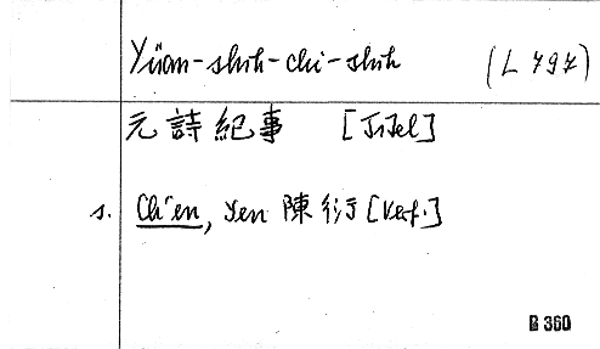 Yüan-shih-chi-shih (L 797)
元詩紀事 [Titel]
s. Ch'en, Yen 陳衍 [Verf.]
B 360